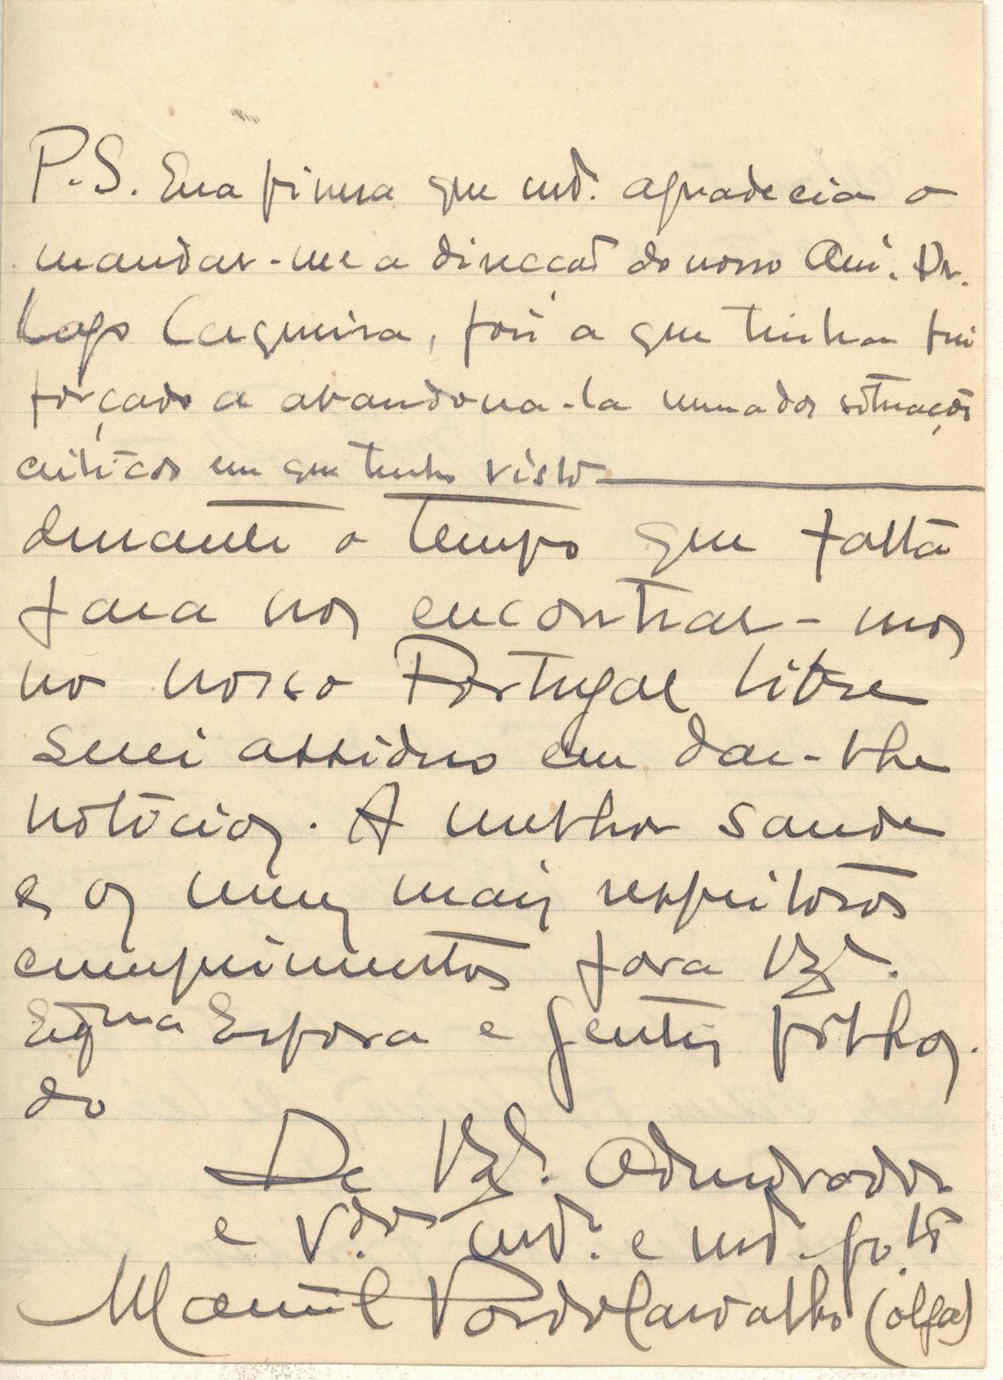 P.S. Era fineza que md. agradecia o
mandar-me a direcção do nosso Am. Dr.
Lago Cerqueira, pois a que tinha fui
forçado a abandona-la numa das situações
criticas em que tenho visto
durante o tempo que falta
para nos encontrar-mos
no nosso Portugal libre
serei assiduo em dar-lhe
noticias. A melhor saude
e os meus mais respeitosos
cumprimentos para
Exma Esposa e gentis filhos.
do
De Admirador
e md. e md. g.to
Manuel Carvalho (olga)